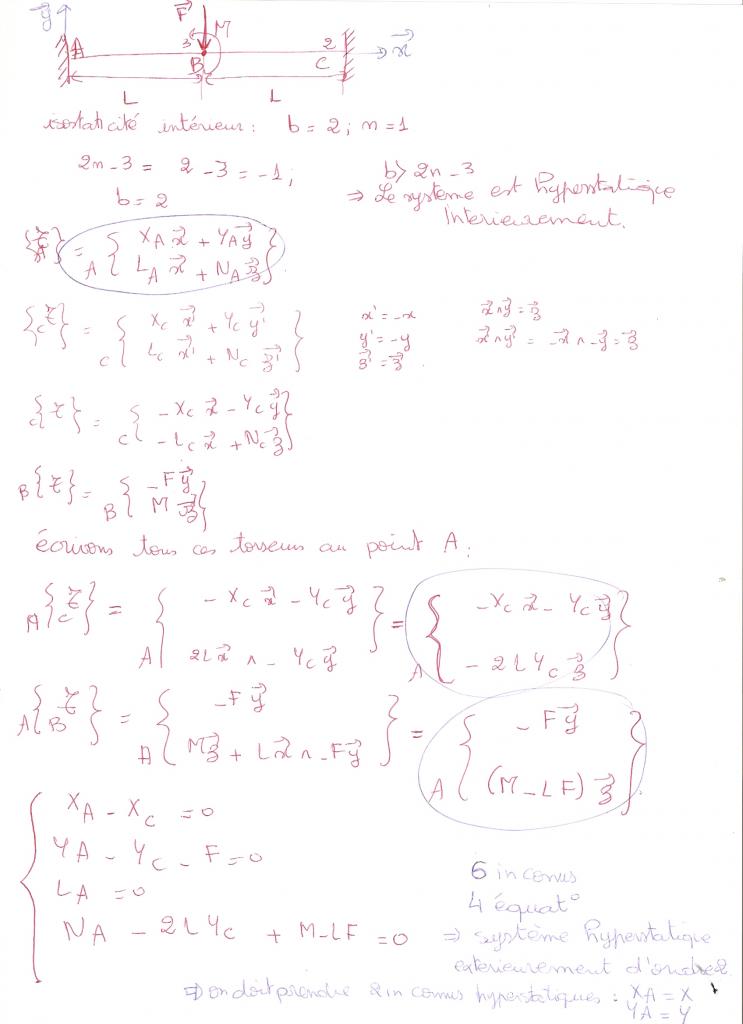 y⃗ F⃗ M
A 3 B 2 C x⃗
L L
isostaticité intérieur : b = 2 ; n = 1
2n - 3 = 2 - 3 = -1 ; b > 2n - 3
b = 2 ⇒ Le système est hyperstatique
Interieurement.
{τ}_A = _A { X_A x⃗ + Y_A y⃗
L_A x⃗ + N_A z⃗ }
_C{τ} = _C { X_C x⃗' + Y_C y⃗'
L_C x⃗' + N_C z⃗' }
x' = -x x⃗ ∧ y⃗ = z⃗
y' = -y x⃗' ∧ y⃗' = -x ∧ -y⃗ = z⃗
z⃗' = z⃗
_C{τ} = _C { -X_C x⃗ - Y_C y⃗
-L_C x⃗ + N_C z⃗ }
_B{τ} = _B { -F y⃗
M z⃗ }
écrivons tous ces torseurs au point A :
_A{τ_C} = _A { -X_C x⃗ - Y_C y⃗ } = _A { -X_C x⃗ - Y_C y⃗ }
2L x⃗ ∧ - Y_C y⃗ - 2L Y_C z⃗
_A{τ_B} = _A { -F y⃗ } = _A { - F y⃗ }
M z⃗ + L x⃗ ∧ -F y⃗ (M - LF) z⃗
X_A - X_C = 0
Y_A - Y_C - F = 0
L_A = 0
N_A - 2L Y_C + M - LF = 0
6 inconus
4 équat°
⇒ système hyperstatique
exterieurement d'ordre 2
⇒ on doit prendre 2 inconus hyperstatiques : X_A = X
Y_A = Y